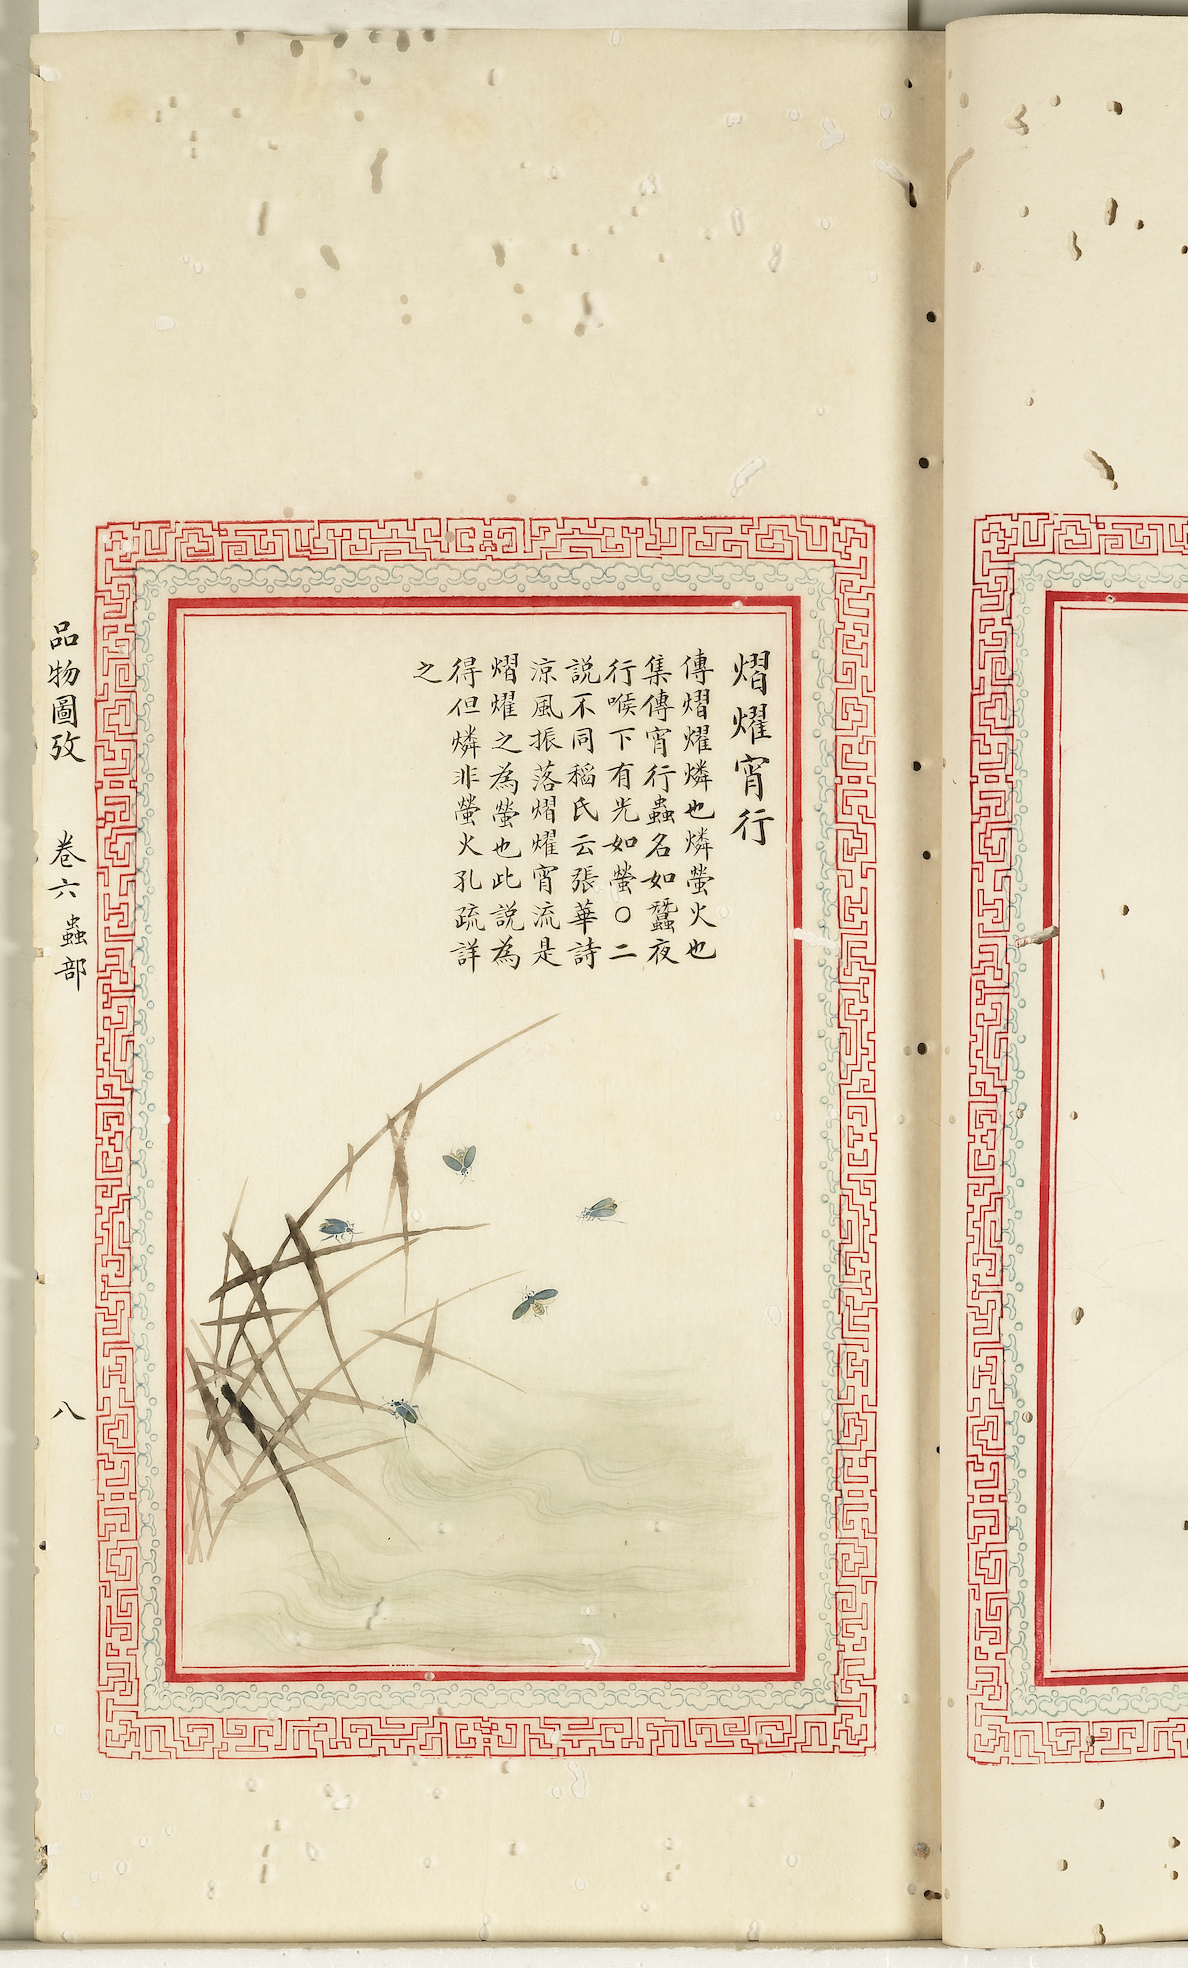 熠燿宵行
傳熠燿燐也燐螢火也
集傳宵行蟲名如蠶夜
行喉下有光如螢○二
説不同稻氏云張華詩
涼風振落熠燿宵流是
熠燿之為螢也此説為
得但燐非螢火孔疏詳
之
品物圖攷 卷六 蟲部 八